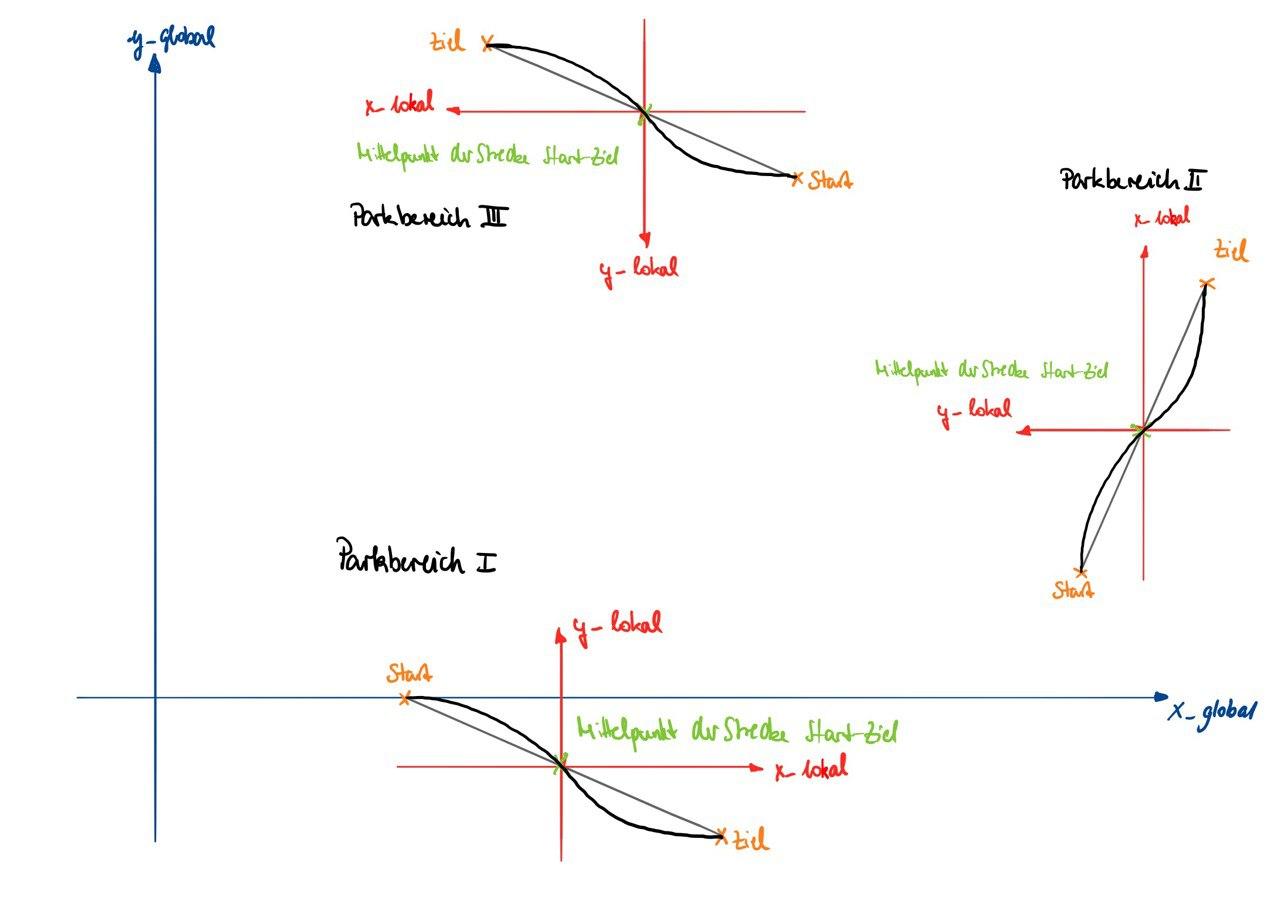 y_global
Ziel
x_lokal
Mittelpunkt der Strecke Start-Ziel
Start
Parkbereich III
y-lokal
Parkbereich II
x-lokal
Ziel
Mittelpunkt der Strecke Start-Ziel
y-lokal
Start
Parkbereich I
y-lokal
Start
x_global
Mittelpunkt der Strecke Start-Ziel
x-lokal
Ziel